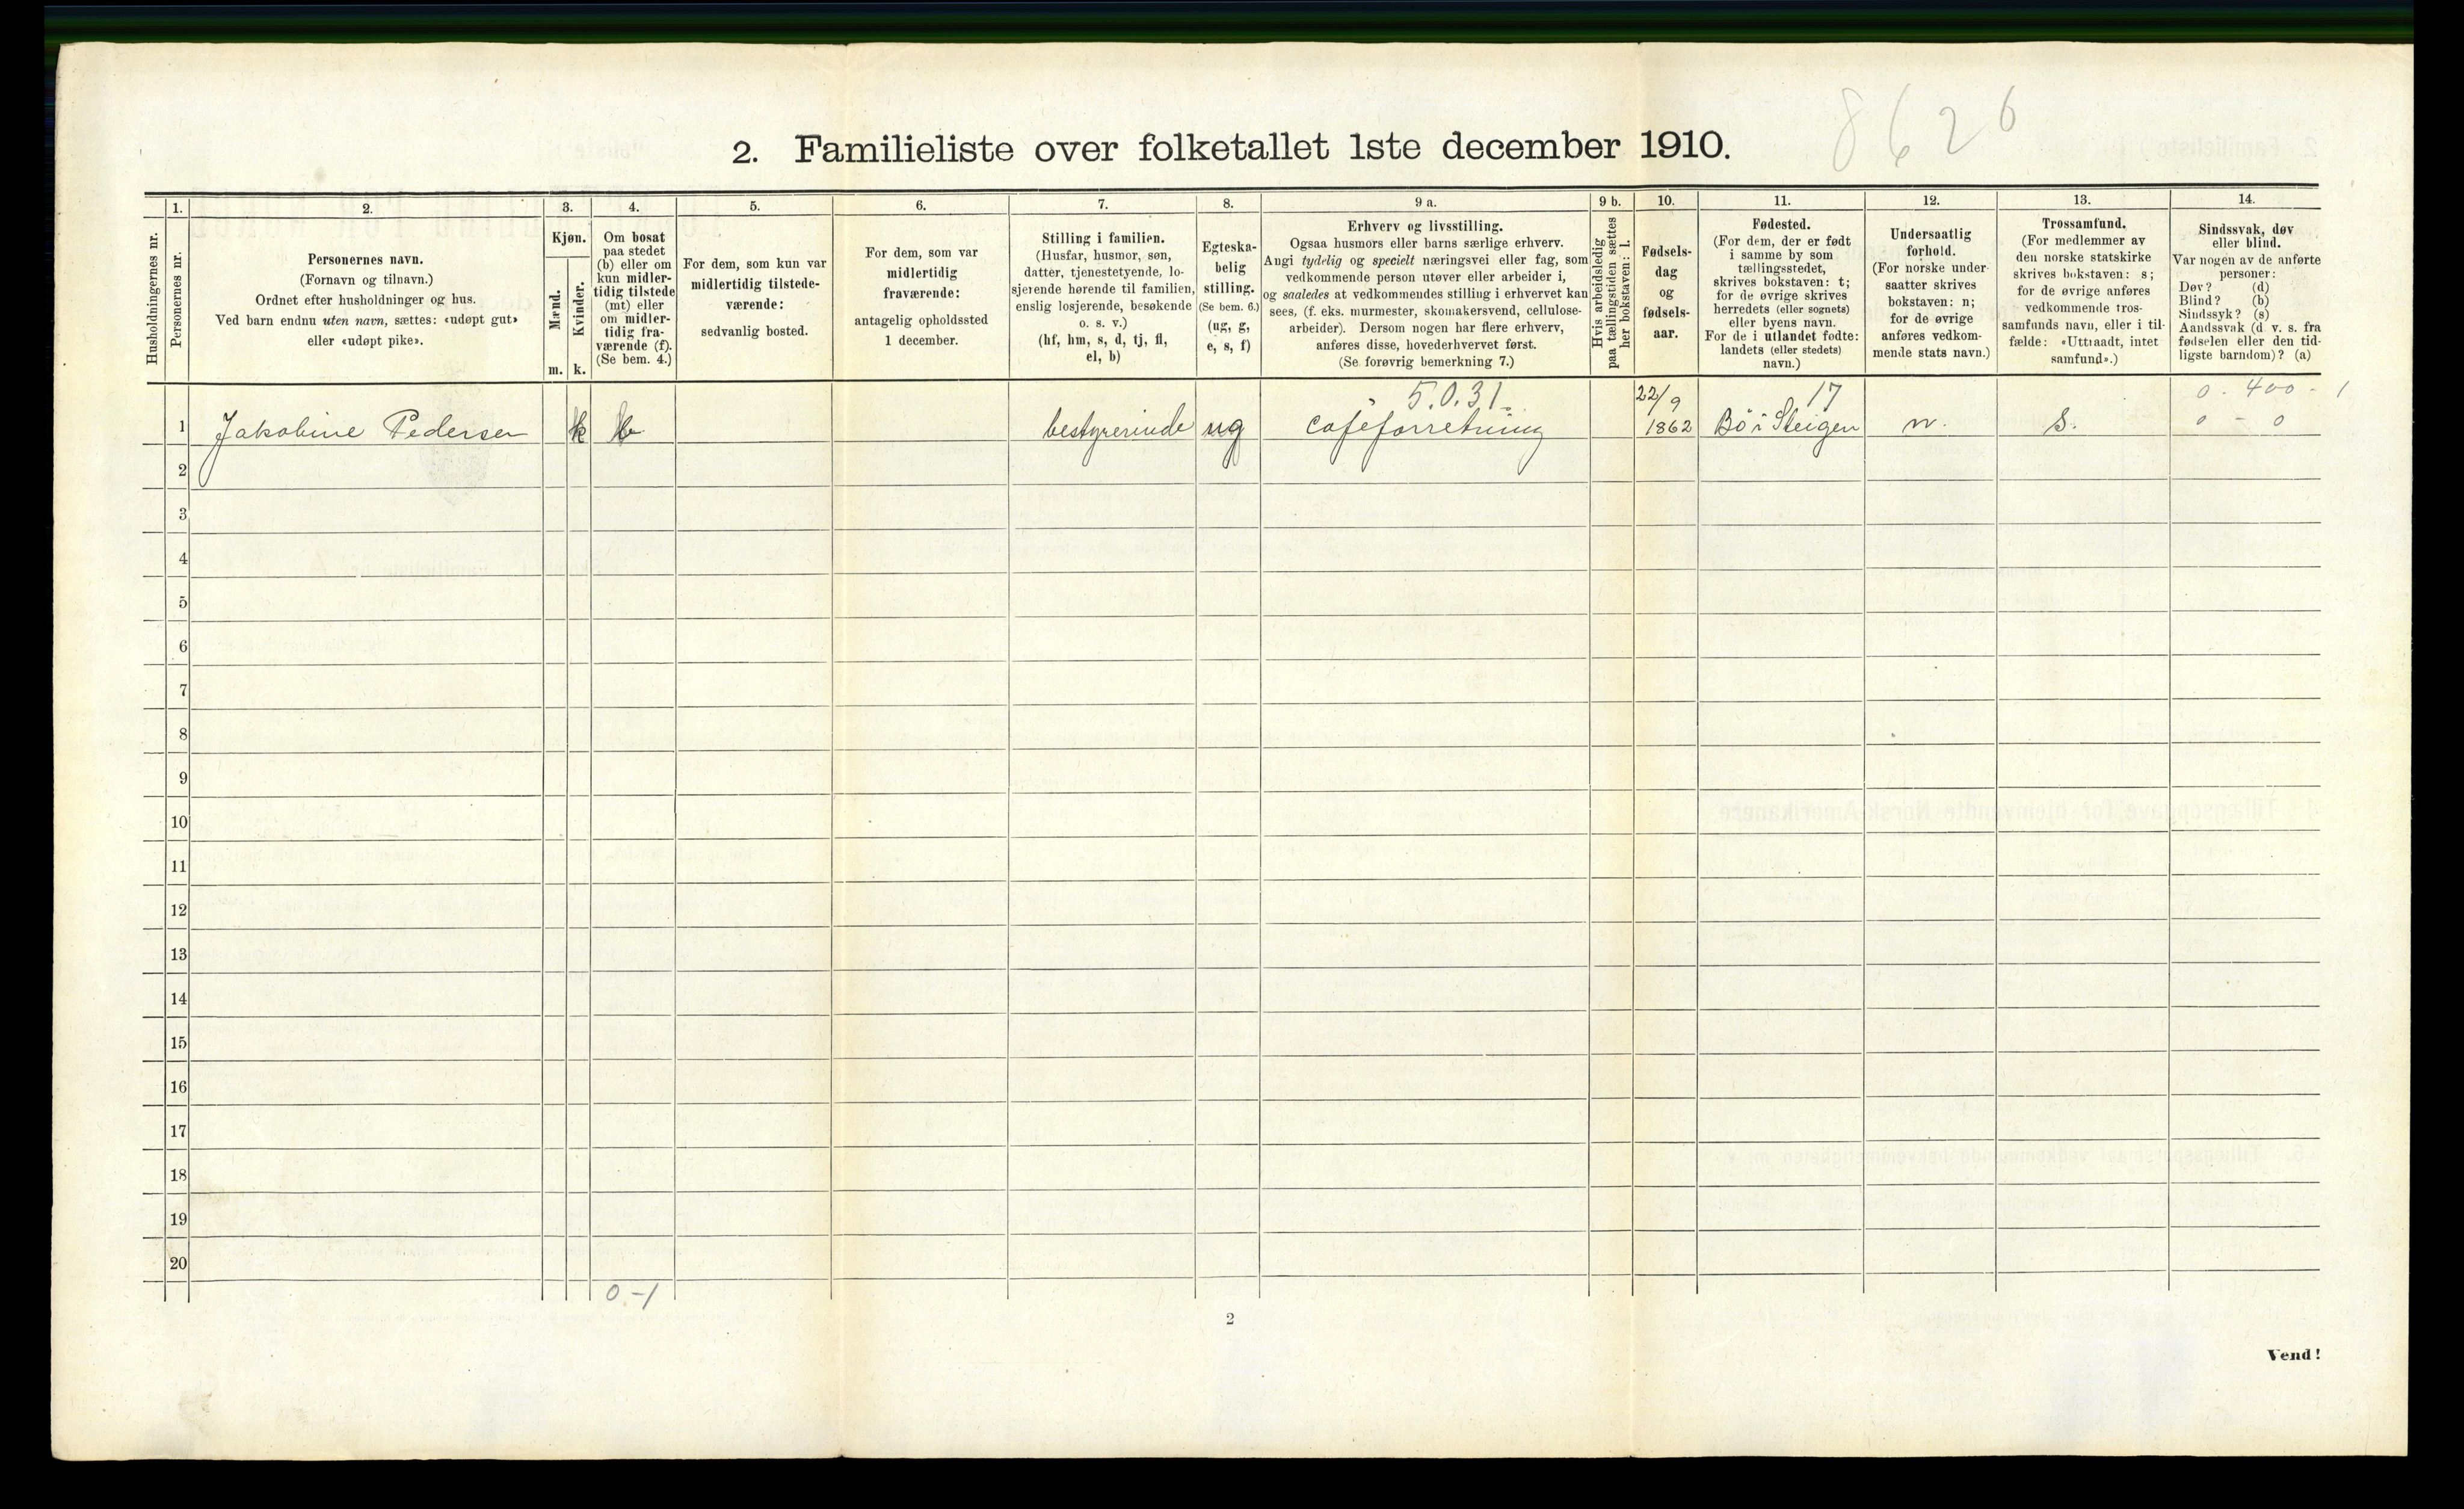 8626
2. Familieliste over folketallet 1ste december 1910.
1.
2.
3.
4.
5.
6.
7.
8.
9 a.
9 b.
10.
11.
12.
13.
14.
Husholdningernes nr.
Personernes nr.
Personernes navn.
(Fornavn og tilnavn.)
Ordnet efter husholdninger og hus.
Ved barn endnu uten navn, sættes: «udøpt gut»
eller «udøpt pike».
Kjøn.
Mænd.
m.
Kvinder.
k.
Om bosat
paa stedet
(b) eller om
kun midler-
tidig tilstede
(mt) eller
om midler-
tidig fra-
værende (f).
(Se bem. 4.)
For dem, som kun var
midlertidig tilstede-
værende:
sedvanlig bosted.
For dem, som var
midlertidig
fraværende:
antagelig opholdssted
1 december.
Stilling i familien.
(Husfar, husmor, søn,
datter, tjenestetyende, lo-
sjerende hørende til familien,
enslig losjerende, besøkende
o. s. v.)
(hf, hm, s, d, tj, fl,
el, b)
Egteska-
belig
stilling.
(Se bem. 6.)
(ug, g,
e, s, f)
Erhverv og livsstilling.
Ogsaa husmors eller barns særlige erhverv.
Angi tydelig og specielt næringsvei eller fag, som
vedkommende person utøver eller arbeider i,
og saaledes at vedkommendes stilling i erhvervet kan
sees, (f. eks. murmester, skomakersvend, cellulose-
arbeider). Dersom nogen har flere erhverv,
anføres disse, hovederhvervet først.
(Se forøvrig bemerkning 7.)
Hvis arbeidsledig
paa tællingstiden sættes
her bokstaven: l.
Fødsels-
dag
og
fødsels-
aar.
Fødested.
(For dem, der er født
i samme by som
tællingsstedet,
skrives bokstaven: t;
for de øvrige skrives
herredets (eller sognets)
eller byens navn.
For de i utlandet fødte:
landets (eller stedets)
navn.)
Undersaatlig
forhold.
(For norske under-
saatter skrives
bokstaven: n;
for de øvrige
anføres vedkom-
mende stats navn.)
Trossamfund.
(For medlemmer av
den norske statskirke
skrives bokstaven: s;
for de øvrige anføres
vedkommende tros-
samfunds navn, eller i til-
fælde: «Uttraadt, intet
samfund».)
Sindssvak, døv
eller blind.
Var nogen av de anførte
personer:
Døv? (d)
Blind? (b)
Sindssyk? (s)
Aandssvak (d. v. s. fra
fødselen eller den tid-
ligste barndom)? (a)
5.0.31. 22/9 17 0 - 400 - 1
1 Jakobine Pedersen k b bestyrerinde ug caféforretning 1862 Bø i Steigen n. s. 0 - 0
2
3
4
5
6
7
8
9
10
11
12
13
14
15
16
17
18
19
20
0-1
2
Vend!